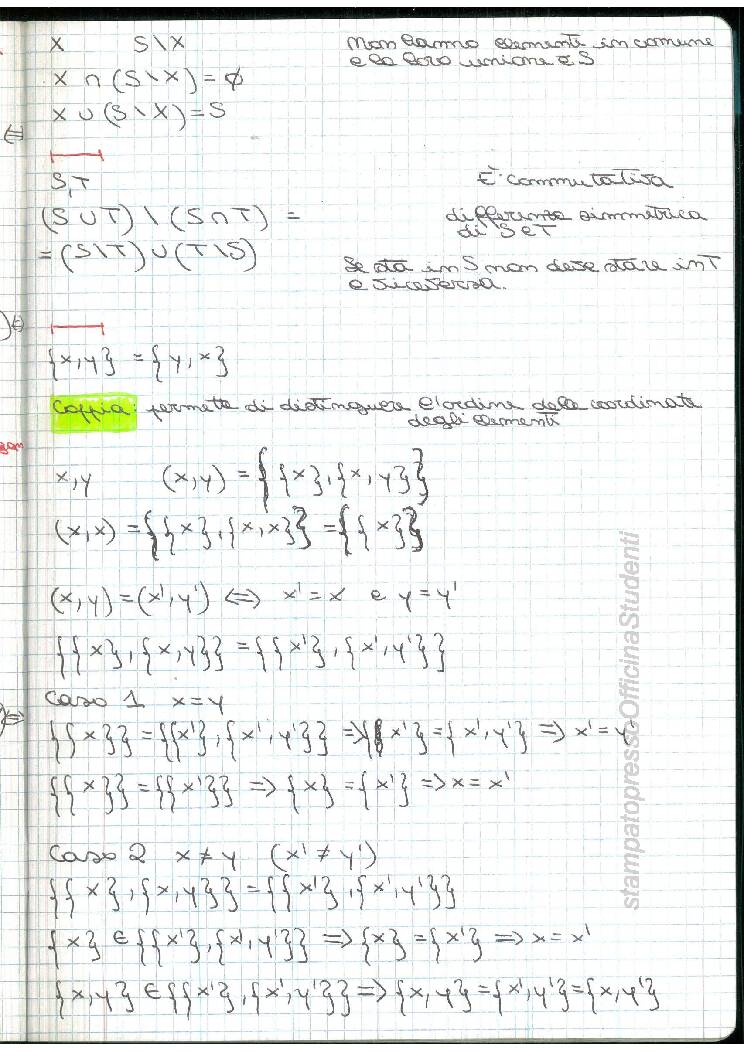 X S\X non hanno elementi in comune
e la loro unione è S
X ∩ (S\X) = ∅
X ∪ (S\X) = S
⇔
S,T È commutativa
(S ∪ T) \ (S ∩ T) = differenza simmetrica
di S e T
= (S\T) ∪ (T\S)
Se sta in S non deve stare in T
e viceversa.
{x,y} = {y,x}
Coppia: permette di distinguere l'ordine delle coordinate
degli elementi
x,y (x,y) = {{x},{x,y}}
(x,x) = {{x},{x,x}} = {{x}}
(x,y) = (x',y') ⇔ x' = x e y = y'
{{x},{x,y}} = {{x'},{x',y'}}
Caso 1 x=y
{{x}} = {{x'},{x',y'}} ⇒ {x'} = {x',y'} ⇒ x' = y'
{{x}} = {{x'}} ⇒ {x} = {x'} ⇒ x = x'
Caso 2 x≠y (x' ≠ y')
{{x},{x,y}} = {{x'},{x',y'}}
{x} ∈ {{x'},{x',y'}} ⇒ {x} = {x'} ⇒ x = x'
{x,y} ∈ {{x'},{x',y'}} ⇒ {x,y} = {x',y'} = {x,y'}
stampatopressoOfficinaStudenti